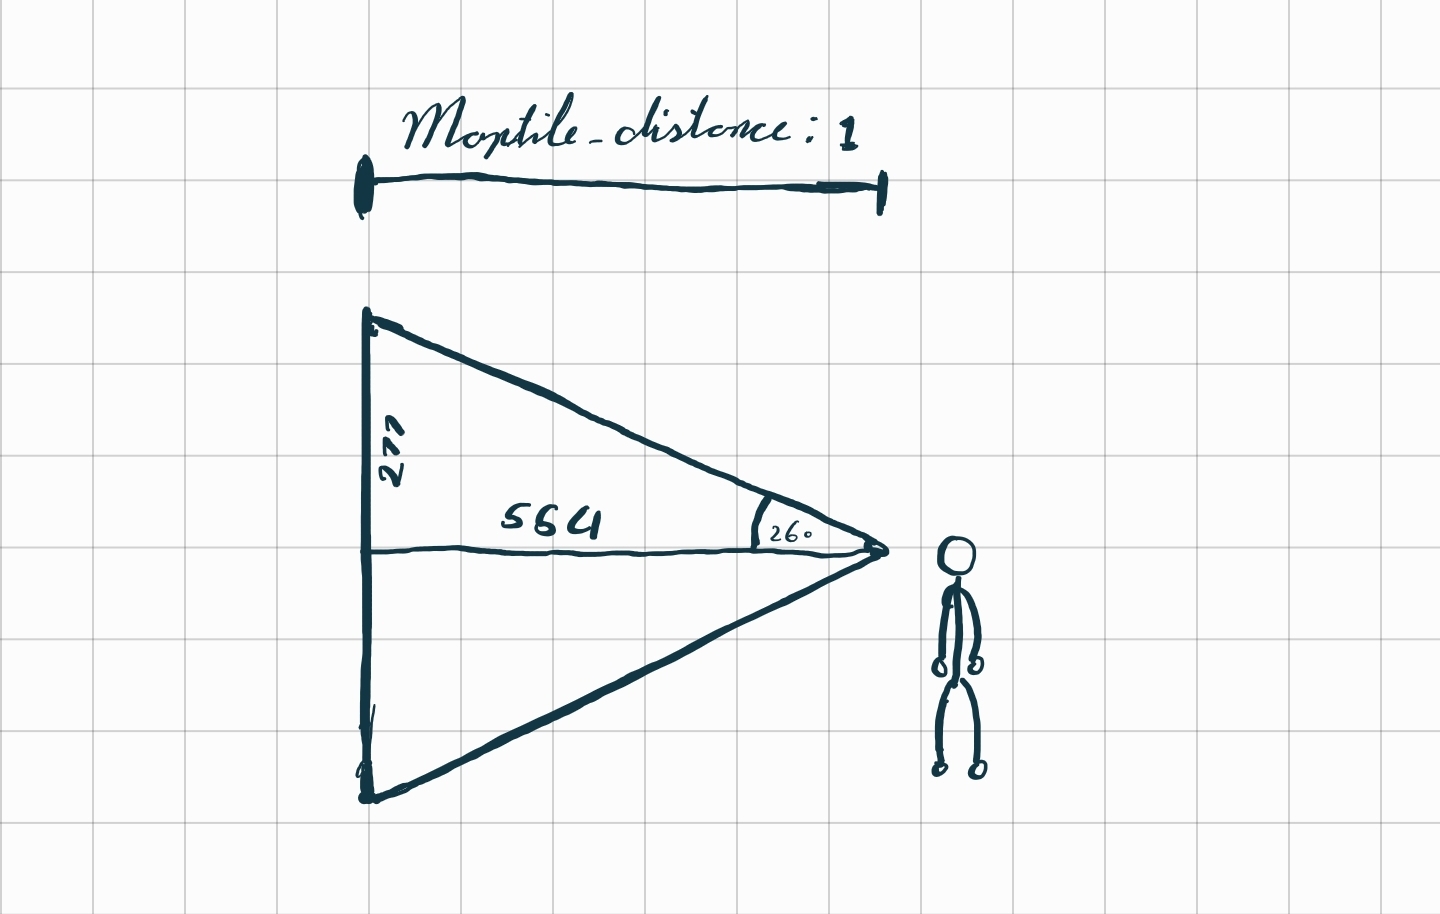 Maptile_distance : 1
277
564
26°